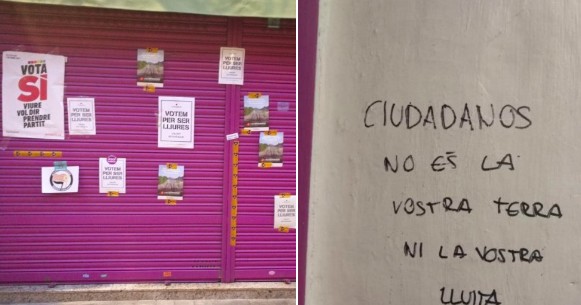 VOTA
SÍ
VIURE
VOL DIR
PRENDRE
PARTIT
VOTEM
PER SER
LLIURES
VOTEM
PER SER
LLIURES
VOTEM
PER SER
LLIURES
VOTEM
PER SER
LLIURES
CIUDADANOS
NO ES LA
VOSTRA TERRA
NI LA VOSTRA
LLUITA